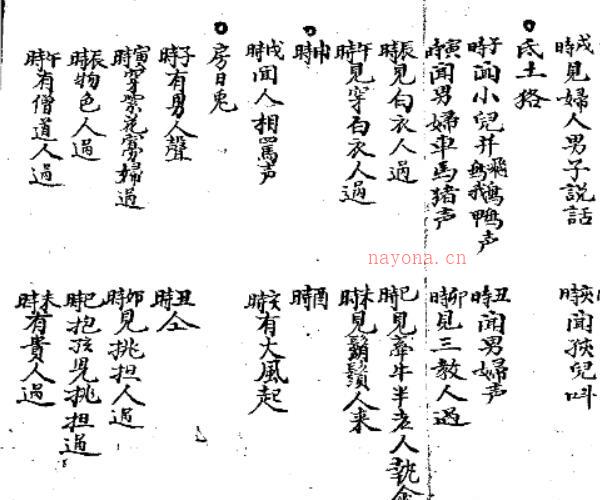 戌時見婦人男子說話
亥時聞孩兒叫
氐土狢
子時聞小兒并飛鵝鴨声
丑時聞男婦声
寅時聞男婦車馬猪声
卯時見三教人过
辰時見白衣人過
巳時見牽牛半老人
午時見穿白衣人過
未時見鬍鬚人来
申時
酉時
戌時聞人相罵声
亥時有大風起
房日兎
子時有男人聲
丑時仝
寅時穿紫花寡婦過
卯時見挑担人過
辰時物色人過
巳時抱孩児挑担過
午時有僧道人過
未時有貴人過
nayona.cn